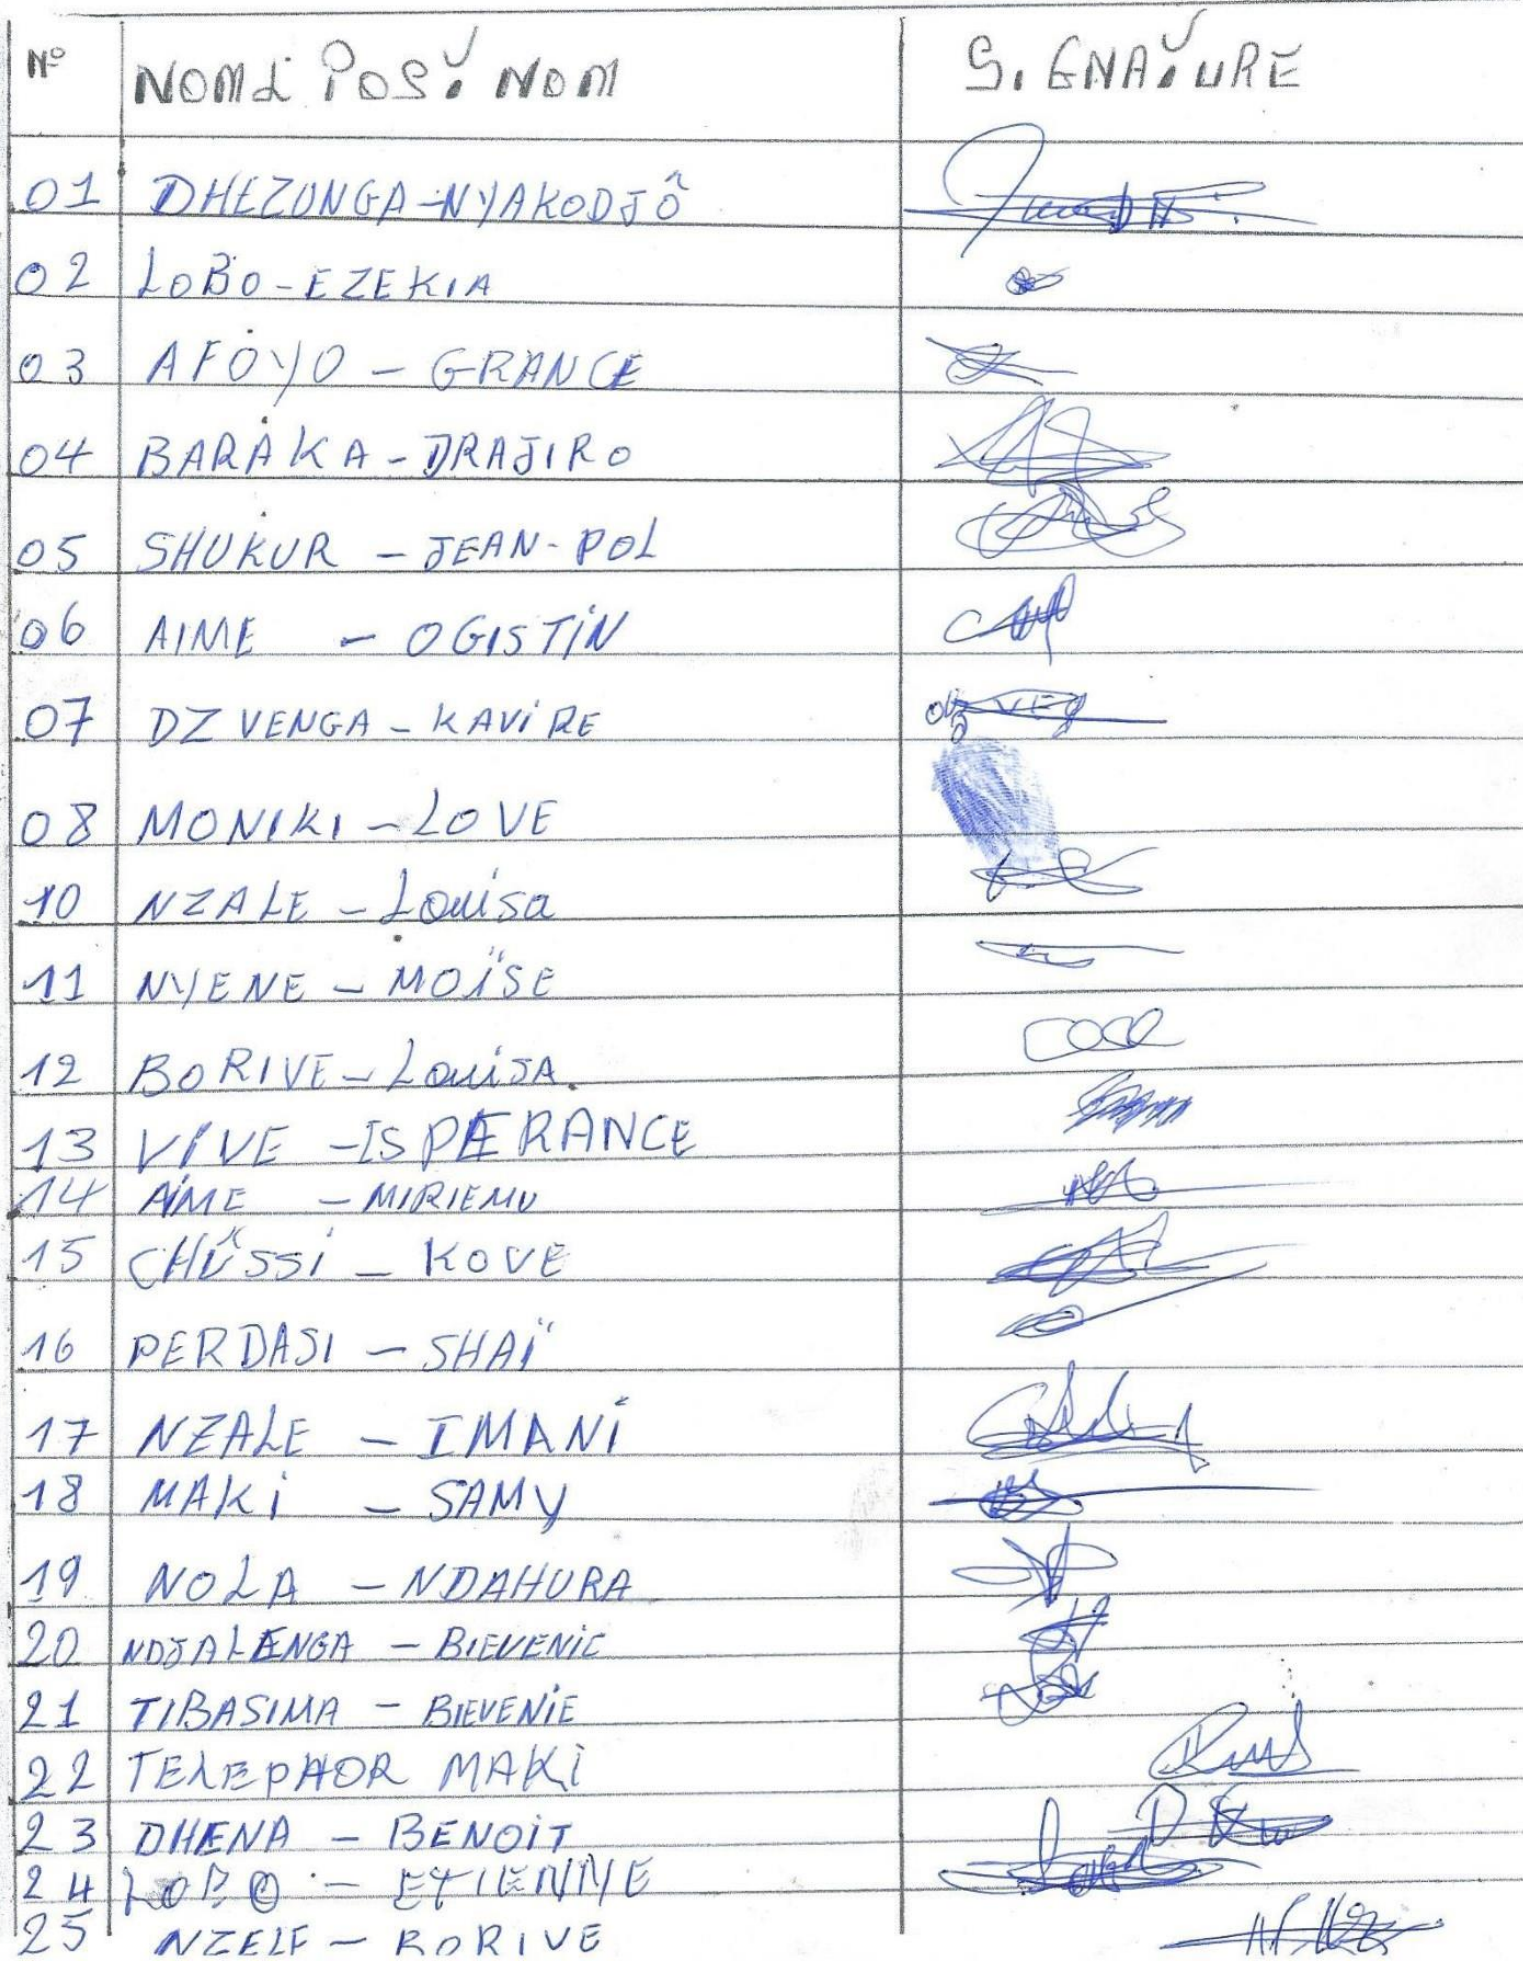 N° NOM & POST NOM SIGNATURE
01 DHEZONGA-NYAKODJÔ
02 LOBO-EZEKIA
03 AFOYO - GRANCE
04 BARAKA-DRAJIRO
05 SHUKUR - JEAN-POL
06 AIME - OGISTIN
07 DZVENGA-KAVIRE
08 MONIKI-LOVE
10 NZALE - Louisa
11 NYENE - MOÏSE
12 BORIVE-LouisA.
13 VIVE -ISPERANCE
14 AIME - MIRIEMU
15 CHUSSI - KOVE
16 PERDASI - SHAÏ
17 NZALE - IMANI
18 MAKI - SAMY
19 NOLA - NDAHURA
20 NDJALENGA - BIEVENIE
21 TIBASIMA - BIEVENIE
22 TELEPHOR MAKI
23 DHENA - BENOIT
24 LOBO - ETIENNE
25 NZELE - BORIVE